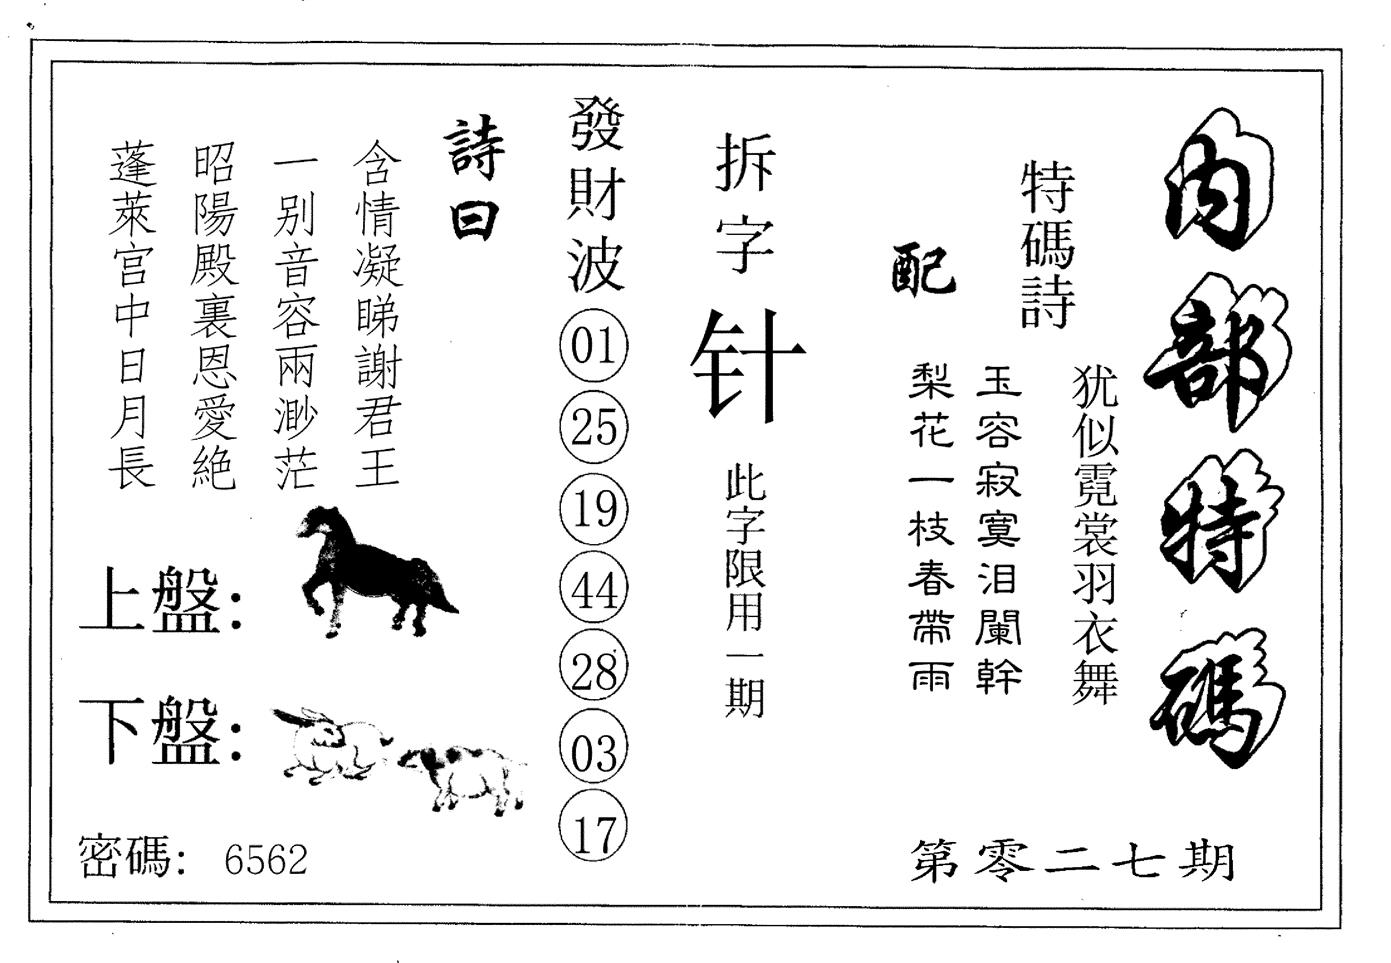 内部特碼
特碼詩
犹似霓裳羽衣舞
配
玉容寂寞泪闌幹
梨花一枝春帶雨
第零二七期
拆字
针
此字限用一期
發財波
01
25
19
44
28
03
17
詩曰
含情凝睇謝君王
一别音容兩渺茫
昭陽殿裏恩愛絕
蓬萊宫中日月長
上盤：
下盤：
密碼： 6562